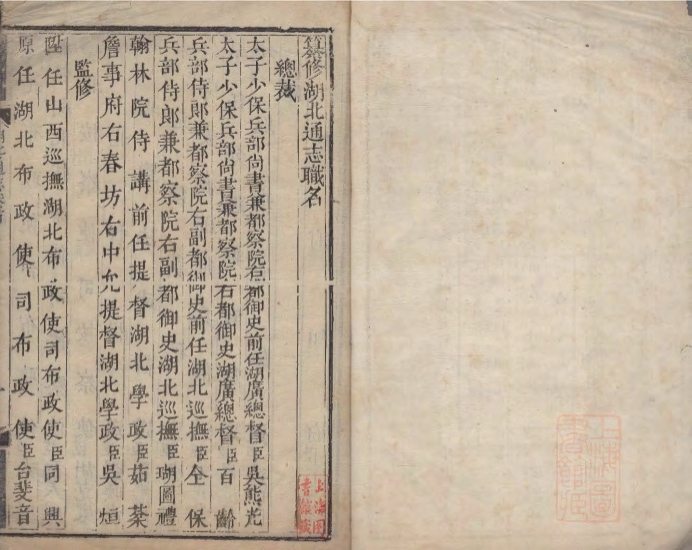 纂修湖北通志職名
總裁
太子少保兵部尚書兼都察院右都御史前任湖廣總督臣吳熊光
太子少保兵部尚書兼都察院右都御史湖廣總督臣百齡
兵部侍郎兼都察院右副都御史前任湖北巡撫臣仝保
兵部侍郎兼都察院右副都御史湖北巡撫臣瑚圖禮
翰林院侍講前任提督湖北學政臣茹棻
詹事府右春坊右中允提督湖北學政臣吳烜
監修
陞任山西巡撫湖北布政使司布政使臣同興
原任湖北布政使司布政使臣台斐音
上海圖書館藏